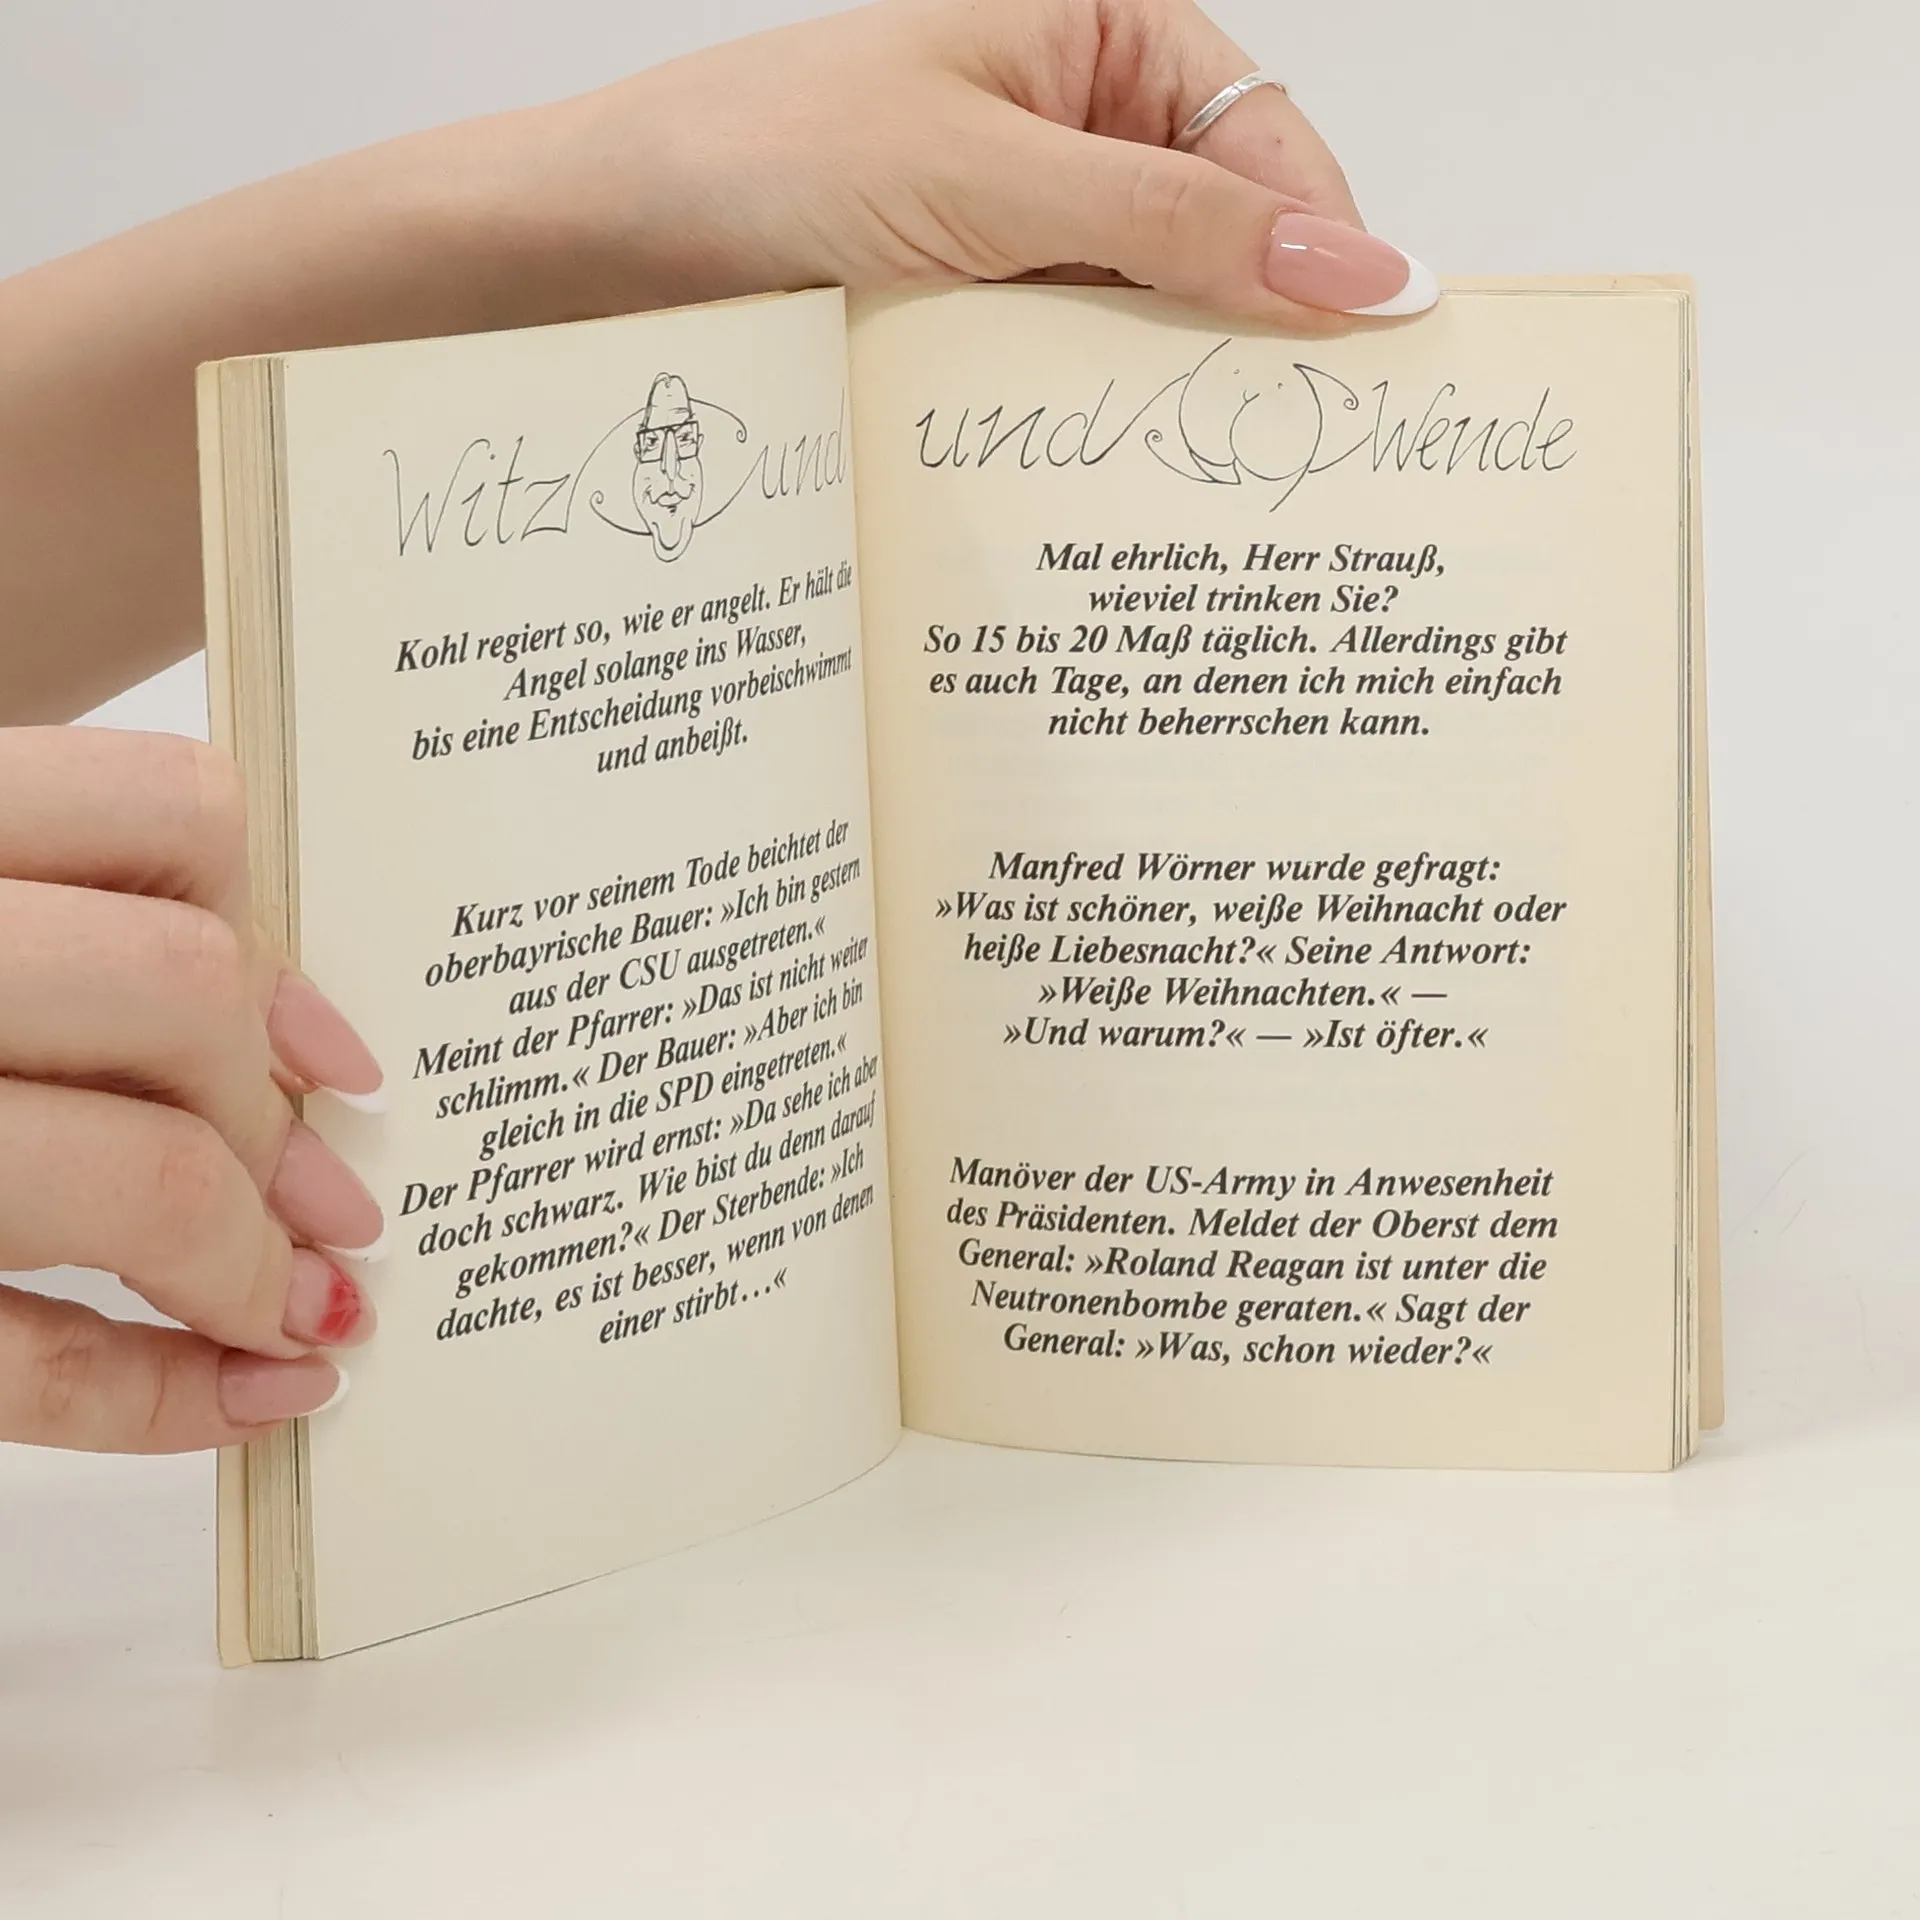 Witz und
Kohl regiert so, wie er angelt. Er hält die
Angel solange ins Wasser,
bis eine Entscheidung vorbeischwimmt
und anbeißt.
Kurz vor seinem Tode beichtet der
oberbayrische Bauer: »Ich bin gestern
aus der CSU ausgetreten.«
Meint der Pfarrer: »Das ist nicht weiter
schlimm.« Der Bauer: »Aber ich bin
gleich in die SPD eingetreten.«
Der Pfarrer wird ernst: »Da sehe ich aber
doch schwarz. Wie bist du denn darauf
gekommen?« Der Sterbende: »Ich
dachte, es ist besser, wenn von denen
einer stirbt...«
und Wende
Mal ehrlich, Herr Strauß,
wieviel trinken Sie?
So 15 bis 20 Maß täglich. Allerdings gibt
es auch Tage, an denen ich mich einfach
nicht beherrschen kann.
Manfred Wörner wurde gefragt:
»Was ist schöner, weiße Weihnacht oder
heiße Liebesnacht?« Seine Antwort:
»Weiße Weihnachten.« —
»Und warum?« — »Ist öfter.«
Manöver der US-Army in Anwesenheit
des Präsidenten. Meldet der Oberst dem
General: »Roland Reagan ist unter die
Neutronenbombe geraten.« Sagt der
General: »Was, schon wieder?«